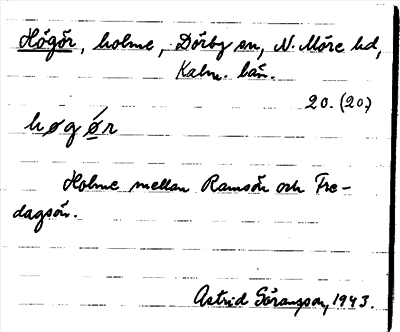 Högör, holme, Dörby sn, N. Möre hd,
Kalm. län.
20. (20)
høgǿr
Holme mellan Ramsön och Fre-
dagsön.
Astrid Göransson, 1943.